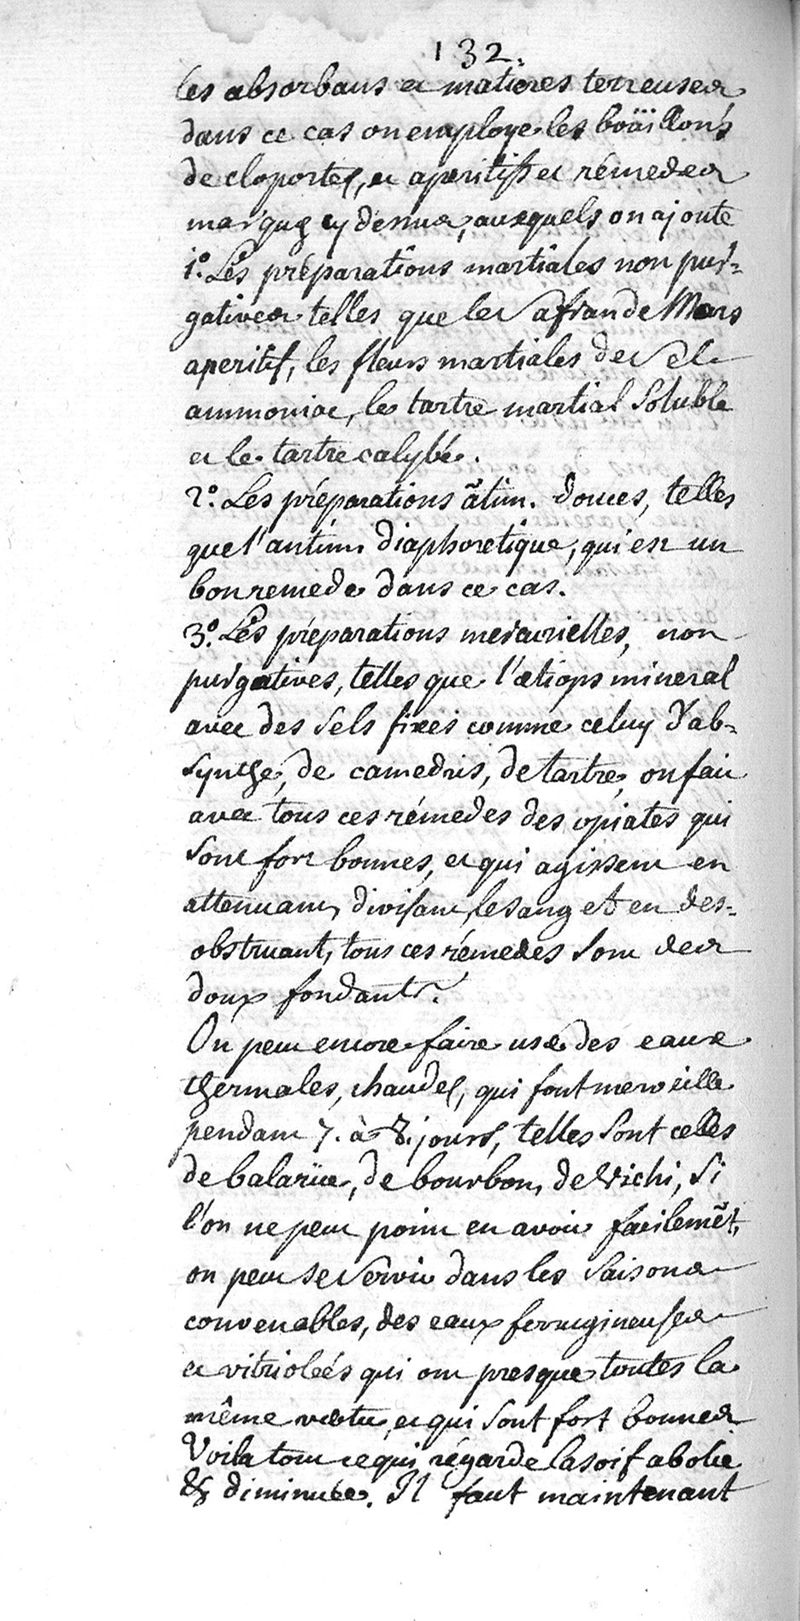 132.
les absorbans et matieres terreuses
dans ce cas on employe les boüillons
de cloportes, et aperitifs et rémedes
marqués cy dessus, auxquels on ajoute
1.° Les préparations martiales non pur=
gatives telles que le safran de Mars
aperitif, les fleurs martiales de sel
ammoniac, le tartre martial soluble
et le tartre calybé.
2.° Les préparations ãtim. douces, telles
que l'antim. diaphoretique, qui est un
bon remede dans ce cas.
3.° Les préparations mercurielles, non
purgatives, telles que l'ætiops mineral
avec des sels fixes comme celuy d'ab=
synthe, de camedris, de tartre, on fait
avec tous ces rémedes des opiates qui
sont fort bonnes, et qui agissent en
attenuant, divisant, le sang et en des=
obstruant, tous ces rémedes sont des
doux fondants.
On peut encore faire use des eaux
thermales, chaudes, qui font merveille
pendant 7. à 8. jours, telles sont celles
de balaruc, de bourbon, de vichi, si
l'on ne peut point en avoir facilemẽt,
on peut se servir dans les saisons
convenables, des eaux ferrugineuses
et vitriolées qui ont presque toutes la
même vertu, et qui sont fort bonnes
Voila tout ce qui régarde la soif abolie
& diminuée. Il faut maintenant